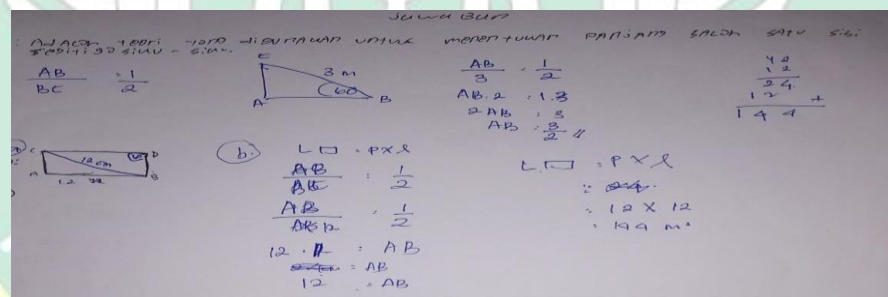 Jawaban
: Adalah teori yang digunakan untuk menentukan panjang salah satu sisi
segitiga siku - siku.
AB : 1
BC 2
C
3 m
60
A B
AB : 1
3 2
AB. 2 : 1.3
2 AB : 3
AB : 3
2 //
12
12
24
12 +
144
C D
12 cm
A B
12
b. L □ = P x l
AB : 1
2
AB : 1
2
12 . : AB
= AB
12 = AB
L □ : P x l
: 12 x 12
: 144 m²